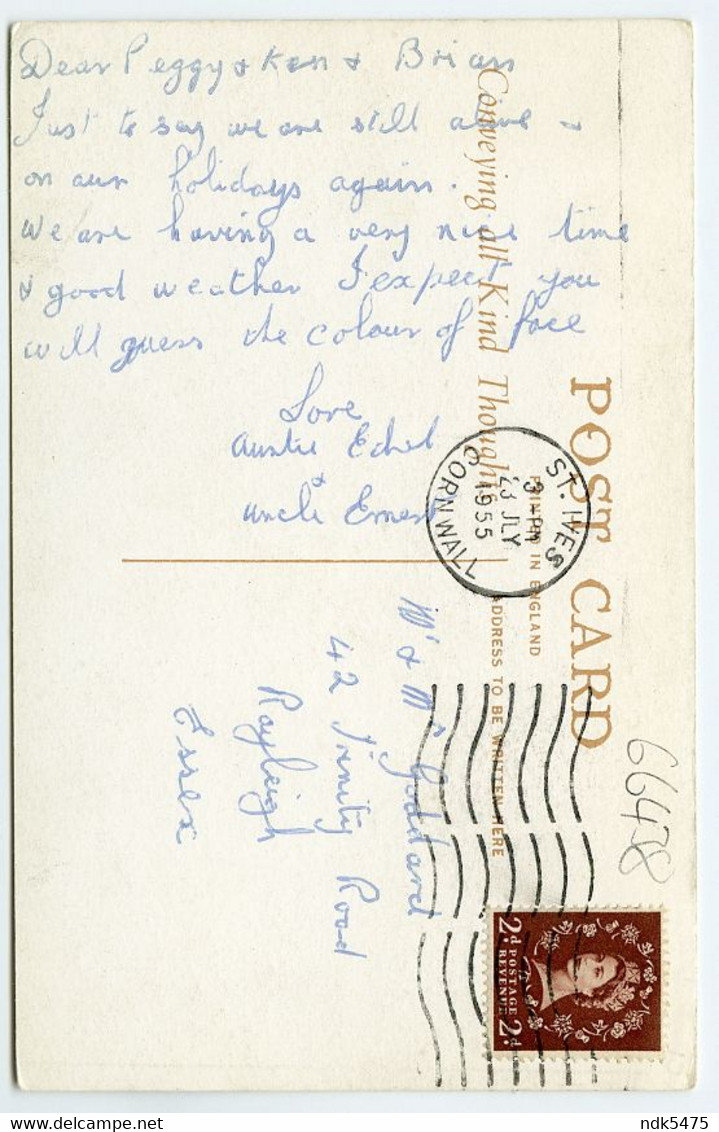 Dear Peggy & Ken & Brian
Just to say we are still alive &
on our holidays again.
We are having a very nice time
& good weather I expect you
will guess the colour of face
Love
Auntie Ethel
&
Uncle Ernest
Conveying all Kind Thoughts
POST CARD
PRINTED IN ENGLAND
ADDRESS TO BE WRITTEN HERE
ST. IVES
3 - PM
23 JLY
1955
CORNWALL
Mr & Mrs Goddard
42 Trinity Road
Rayleigh
Essex
66478
2d POSTAGE REVENUE 2d
www.delcampe.net
ndk5475